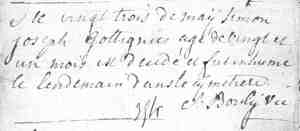 le vingt trois de maÿ Simon
Joseph Gottignies agé de vingt et
un mois est decédé et fut inhumé
le lendemain dans le cÿmetiere